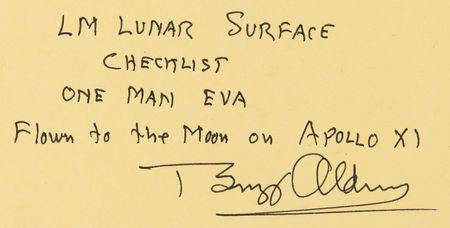 LM LUNAR SURFACE
CHECKLIST
ONE MAN EVA
Flown to the Moon on APOLLO XI
Buzz Aldrin